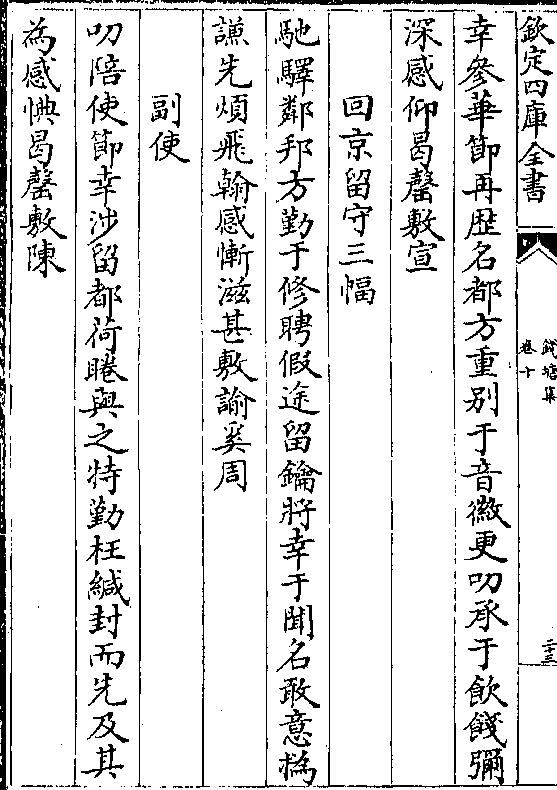 欽定四庫全書
錢塘集
卷十
二十三
幸參華節再歴名都方重别于音徽更叨承于飲餞彌
深感仰曷罄敷宣
回京留守三幅
馳驛鄰邦方勤于修聘假途留鑰將幸于聞名敢意撝
謙先煩飛翰感慚滋甚敷諭奚周
副使
叨陪使節幸涉留都荷睠與之特勤枉緘封而先及其
為感㥏曷罄敷陳